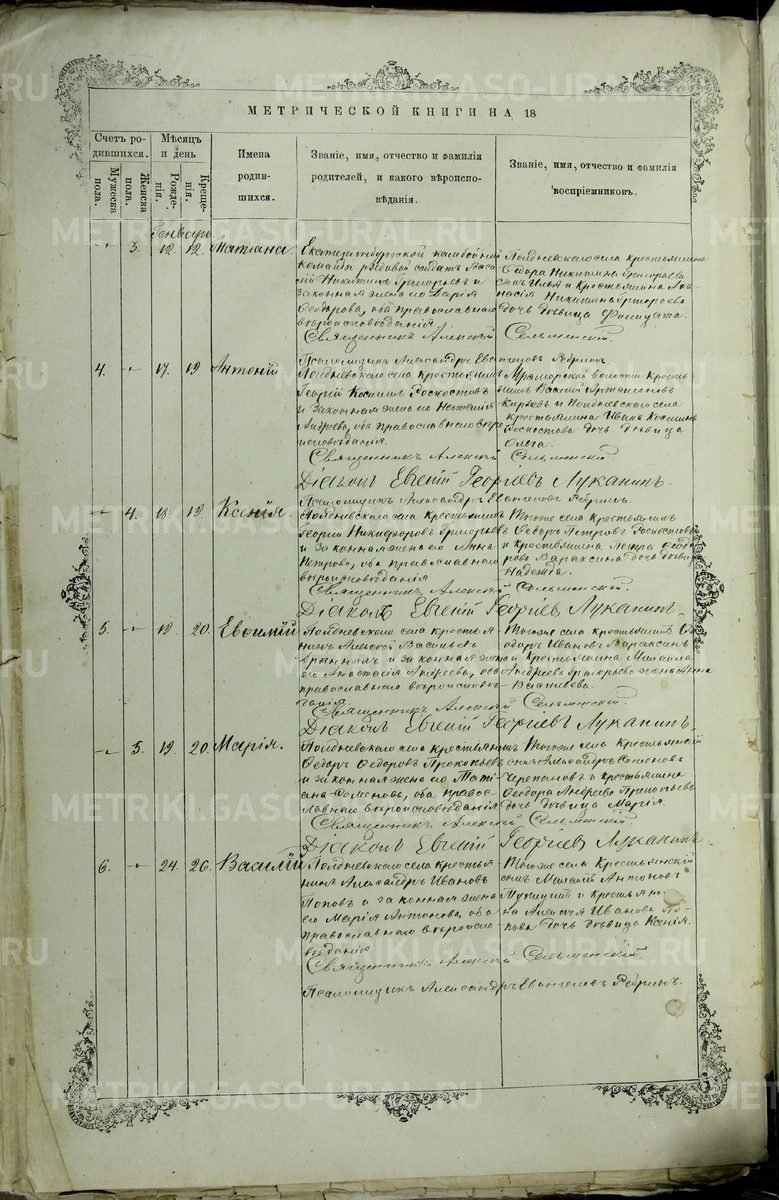 МЕТРИЧЕСКОЙ КНИГИ НА 18
Счетъ ро-
дившихся.
Мѣсяцъ
и день
Мужеска
пола.
Женска
пола.
Рожде-
нія.
Креще-
нія.
Имена
родив-
шихся.
Званіе, имя, отчество и фамилія
родителей, и какого вѣроиспо-
вѣданія.
Званіе, имя, отчество и фамилія
воспріемниковъ.
Генварь.
3. 12. 12. Татіана.
Екатеринбургской
команды рядовой солдатъ Васи-
лій Никитинъ Григорьевъ и
законная жена его Дарія
Ѳеодорова, оба православнаго
вѣроисповѣданія
Полдневскаго села крестьянина
Ѳедора Никитина Григорьева
сынъ Илья и крестьянина Аѳа-
насія Никитина Григорьева
дочь дѣвица
Священникъ Алексій Сельменскій.
Псаломщикъ Александръ Евангеловъ Ребринъ.
4. 17. 19 Антоній
Полдневскаго села крестьянинъ
Георгій Косминъ Роскостовъ
и законная жена его Наталія
Андреева, оба православнаго вѣро
исповѣданія.
Мраморской волости кресть-
янинъ Василій Артамоновъ
Кирьевъ и Полдневскаго села
крестьянина Ивана Космина
Роскостова дочь дѣвица
Ольга.
Священникъ Алексій Сельменскій
Діаконъ Евгеній Георгіевъ Луканинъ.
Псаломщикъ Александръ Евангеловъ Ребринъ.
4. 18. 19. Ксенія.
Полдневскаго села крестьянинъ
Георгій Никифоровъ Григорьевъ
и законная жена его Анна
Петрова, оба православнаго
вѣроисповѣданія
Тогоже села крестьянинъ
Ѳедоръ Петровъ Роскостовъ
и крестьянина Петра Ѳеодо-
рова Вараксина дочь дѣвица
Надежда.
Священникъ Алексій Сельменскій.
Діаконъ Евгеній Георгіевъ Луканинъ.
5. 19. 20. Евѳимій
Полдневскаго села крестья-
нинъ Алексій Васильевъ
и законная жена
его Анастасія Андреева, оба
православнаго вѣроисповѣ-
данія
Тогоже села крестьянинъ Ѳе-
одоръ Ивановъ Вараксинъ
и крестьянина Михаила
Андреева Григорьева жена Анна
Васильева.
Священникъ Алексій Сельменскій.
Діаконъ Евгеній Георгіевъ Луканинъ.
5. 19. 20. Марія.
Полдневскаго села крестьянинъ
Ѳедоръ Ѳедоровъ Прокопьевъ
и законная жена его Тати-
ана Фоменова, оба правос-
лавнаго вѣроисповѣданія
Тогоже села крестьянскій
сынъ Александръ Семеновъ
Черепановъ и крестьянина
Ѳеодора Андреева Прокопьева
дочь дѣвица Марія.
Священникъ Алексій Сельменскій
Діаконъ Евгеній Георгіевъ Луканинъ.
6. 24. 26. Василій
Полдневскаго села крестья-
нинъ Александръ Ивановъ
Поповъ и законная жена
его Марія Антонова, оба
православнаго вѣроиспо-
вѣданія
Тогоже села Крестьянскій
сынъ Михаилъ Антоновъ
и крестьяни-
на Алексѣя Иванова По-
пова дочь дѣвица Ксенія.
Священникъ Алексій Сельменскій.
Псаломщикъ Александръ Евангеловъ Ребринъ.
METRIKI.GASO-URAL.RU